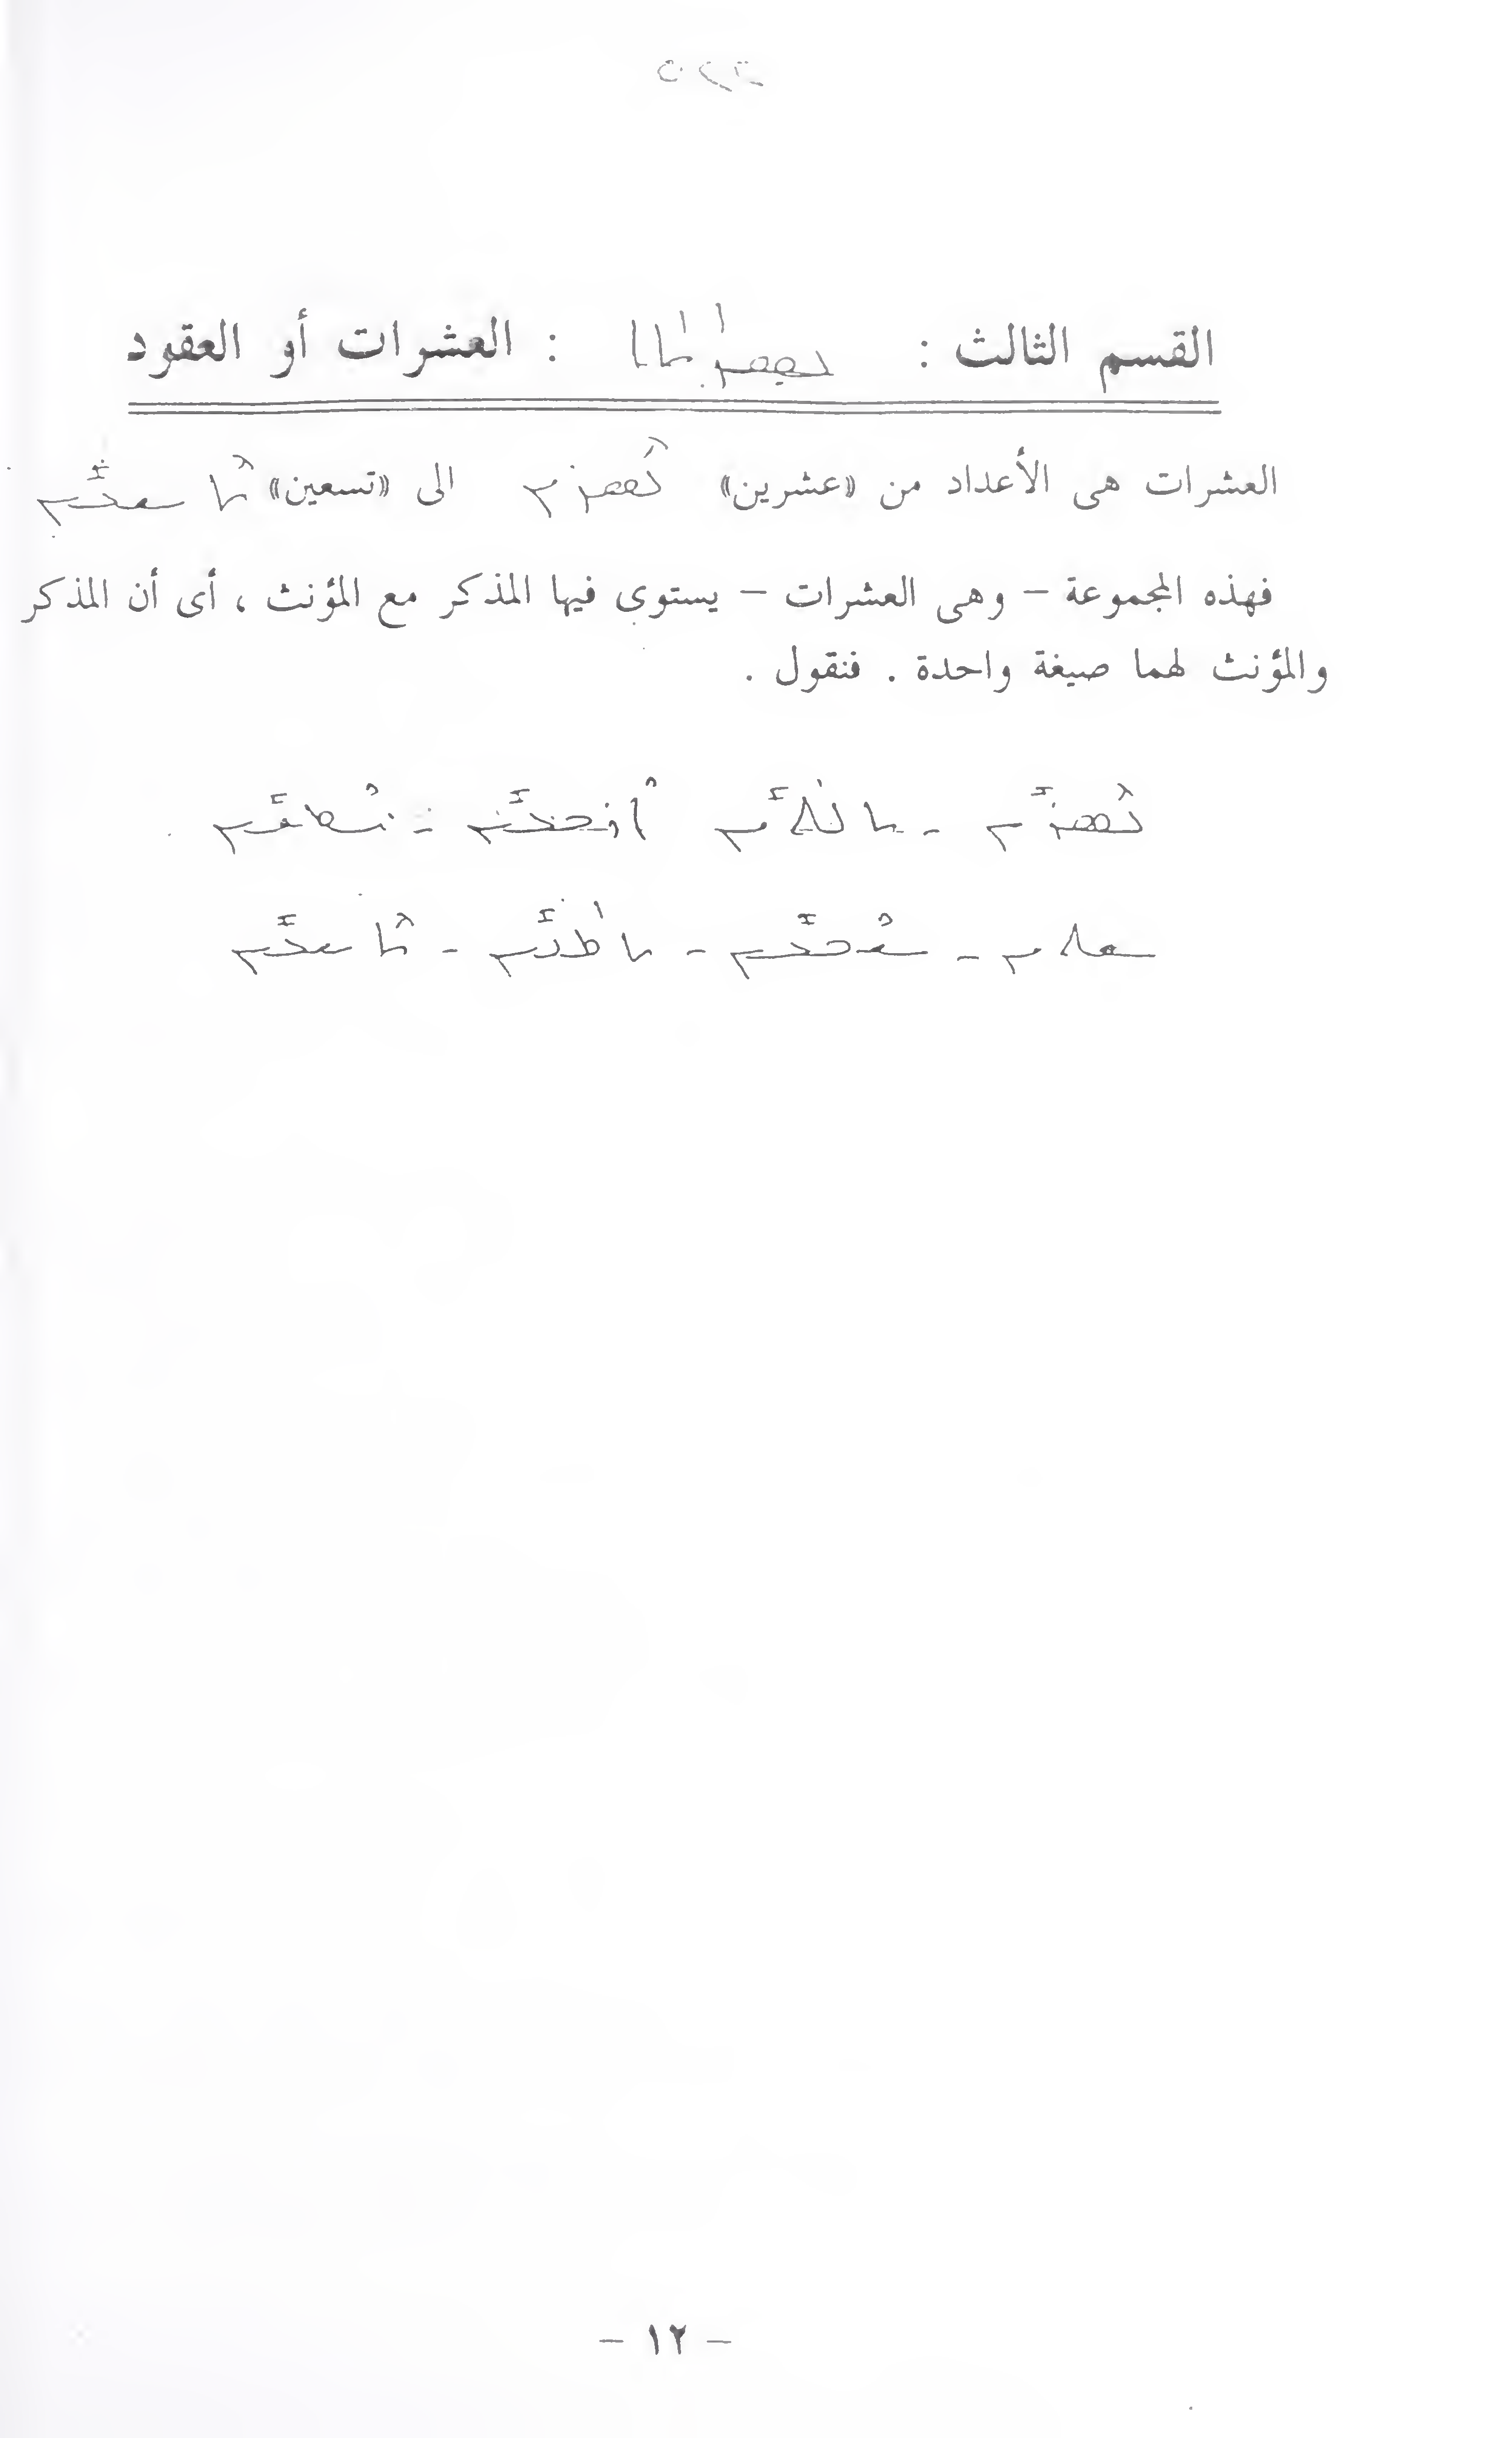 القسم الثالث : ܥܣܪ̈ܝܬܐ : العشرات أو العقود
العشرات هى الأعداد من «عشرين» ܥܣܪܝܢ الى «تسعين» ܬܫܥܝܢ
فهذه المجموعة – وهى العشرات – يستوى فيها المذكر مع المؤنث ، أى أن المذكر
والمؤنث لهما صيغة واحدة . فنقول .
ܥܣܪܝܢ – ܬܠܬܝܢ ܐܪܒܥܝܢ – ܚܡܫܝܢ
ܫܬܝܢ – ܫܒܥܝܢ – ܬܡܢܝܢ – ܬܫܥܝܢ
– ١٢ –